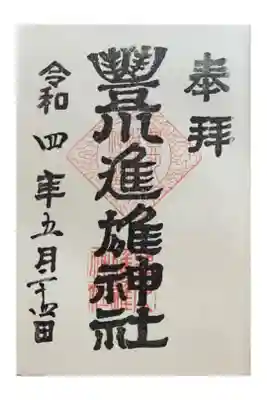 奉拝
豊川進雄神社
令和四年五月二十四日